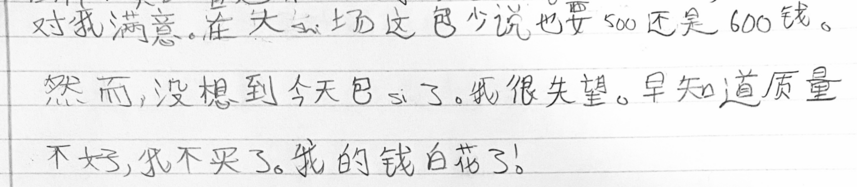 对我满意。在大shi场这包少说也要500还是600钱。
然而,没想到今天包si了。我很失望。早知道质量
不好,我不买了。我的钱白花了!